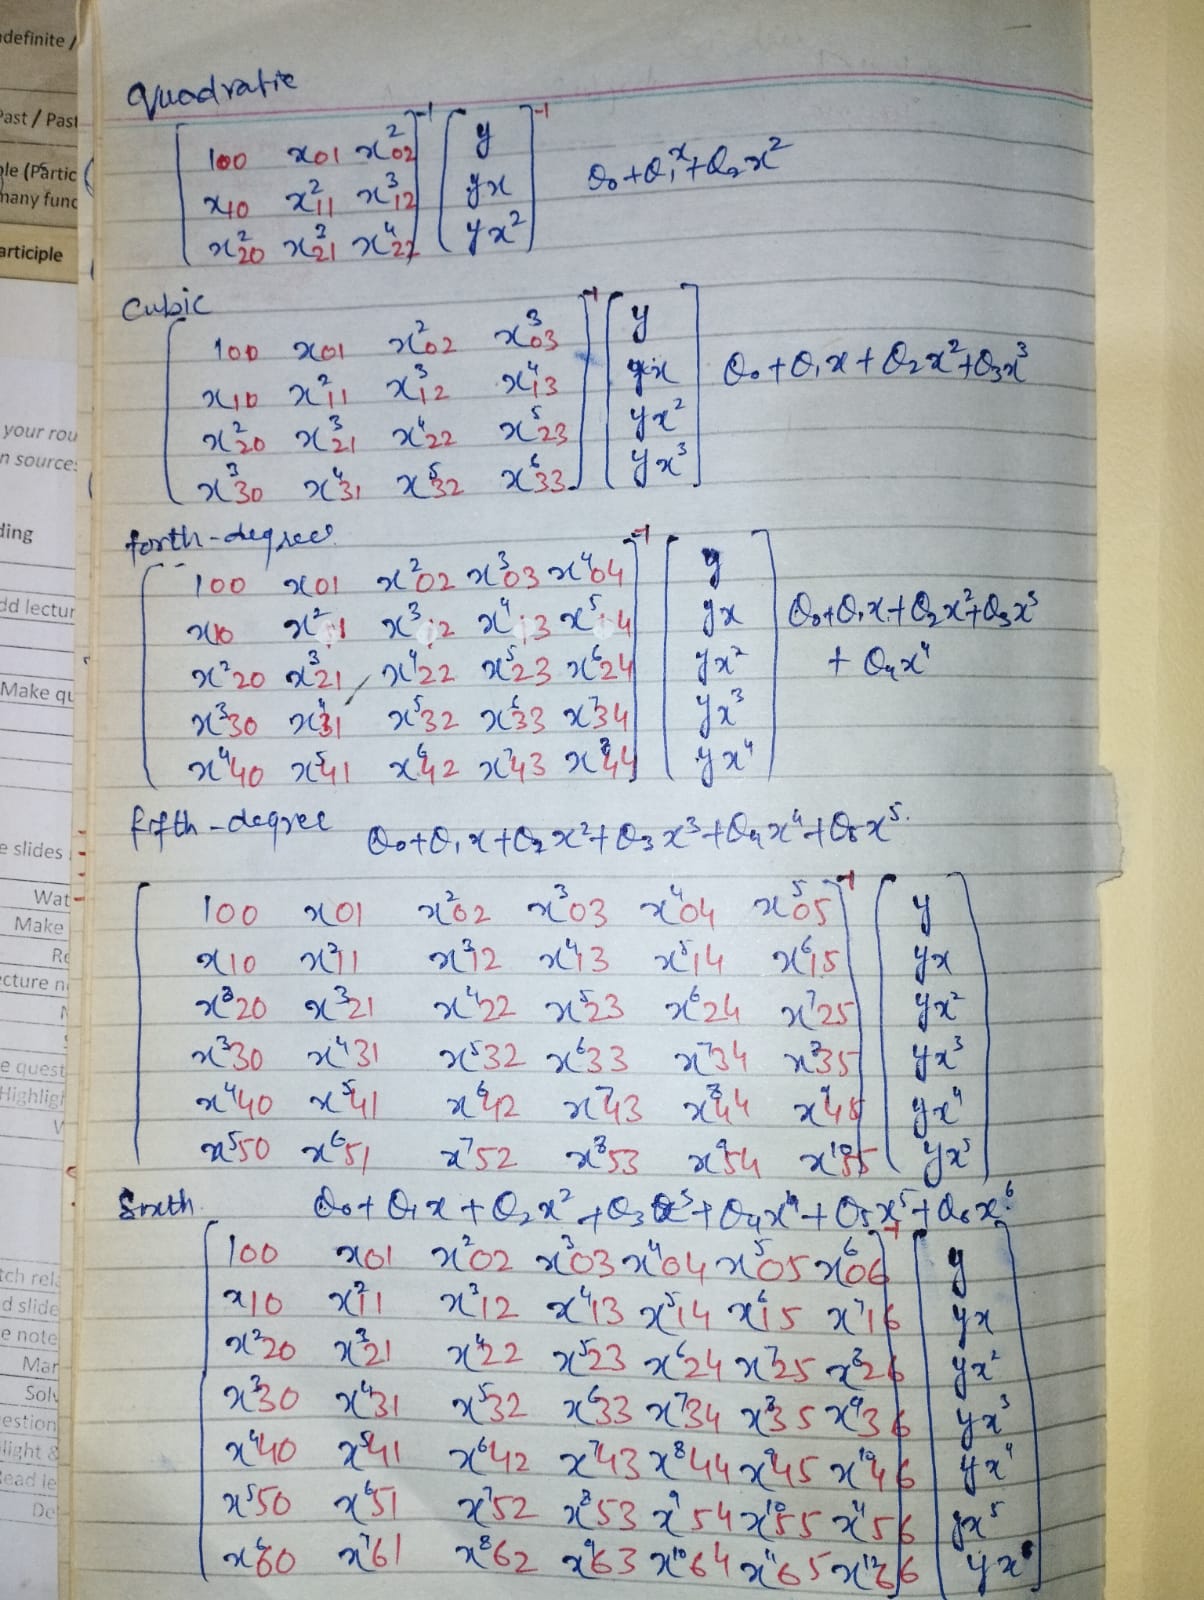 ndefinite /
Past / Past
ole (Partic
many func
articiple
your rou
n source:
ding
dd lectur
Make qu
e slides
Wat
Make
Re
ecture n
e quest
Highligh
tch rela
d slide
e note
Mar
Solv
estion
light &
Read le
De
Quadratic
100 x01 x²02
x10 x²11 x³12
x²20 x³21 x⁴22
-1
y
yx
yx²
-1
θ₀+θ₁x+θ₂x²
Cubic
100 x01 x²02 x³03
x10 x²11 x³12 x⁴13
x²20 x³21 x⁴22 x⁵23
x³30 x⁴31 x⁵32 x⁶33
-1
y
yx
yx²
yx³
θ₀+θ₁x+θ₂x²+θ₃x³
forth-degree
100 x01 x²02 x³03 x⁴04
x10 x²11 x³12 x⁴13 x⁵14
x²20 x³21 x⁴22 x⁵23 x⁶24
x³30 x⁴31 x⁵32 x⁶33 x⁷34
x⁴40 x⁵41 x⁶42 x⁷43 x⁸44
-1
y
yx
yx²
yx³
yx⁴
θ₀+θ₁x+θ₂x²+θ₃x³
+ θ₄x⁴
fifth-degree θ₀+θ₁x+θ₂x²+θ₃x³+θ₄x⁴+θ₅x⁵.
100 x01 x²02 x³03 x⁴04 x⁵05
x10 x²11 x³12 x⁴13 x⁵14 x⁶15
x²20 x³21 x⁴22 x⁵23 x⁶24 x⁷25
x³30 x⁴31 x⁵32 x⁶33 x⁷34 x⁸35
x⁴40 x⁵41 x⁶42 x⁷43 x⁸44 x⁹45
x⁵50 x⁶51 x⁷52 x⁸53 x⁹54 x¹⁰55
-1
y
yx
yx²
yx³
yx⁴
yx⁵
Sixth θ₀+θ₁x+θ₂x²+θ₃x³+θ₄x⁴+θ₅x⁵+θ₆x⁶
100 x01 x²02 x³03 x⁴04 x⁵05 x⁶06
x10 x²11 x³12 x⁴13 x⁵14 x⁶15 x⁷16
x²20 x³21 x⁴22 x⁵23 x⁶24 x⁷25 x⁸26
x³30 x⁴31 x⁵32 x⁶33 x⁷34 x⁸35 x⁹36
x⁴40 x⁵41 x⁶42 x⁷43 x⁸44 x⁹45 x¹⁰46
x⁵50 x⁶51 x⁷52 x⁸53 x⁹54 x¹⁰55 x¹¹56
x⁶60 x⁷61 x⁸62 x⁹63 x¹⁰64 x¹¹65 x¹²66
-1
y
yx
yx²
yx³
yx⁴
yx⁵
yx⁶